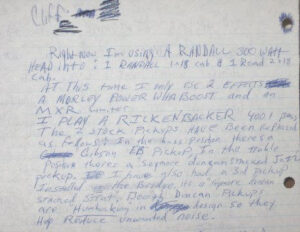 Cliff:
Right now I'm using A RANDALL 300 watt
HEAD INTO: 1 RANDALL 1-18 cab & 1 Road 2x18
cab.
At This time I only use 2 EFFECTS
A MORLEY POWER WHA BOOST and an
MXR Limiter
I PLAY A RICKENBACKER 4001 bass
The 2 stock Pickups HAVE BEEN replaced
as follows. In the bass Position theres a
Gibson EB PICKUP, In the treble
Position theres a Seymore duncan stacked Jazz
pickup. I have also had a 3rd pickup
Installed the Bridge, its a Seymore Duncan
stacked Strat. Duncan Pickups
are Humbucking in design so they
Help Reduce unwanted noise.